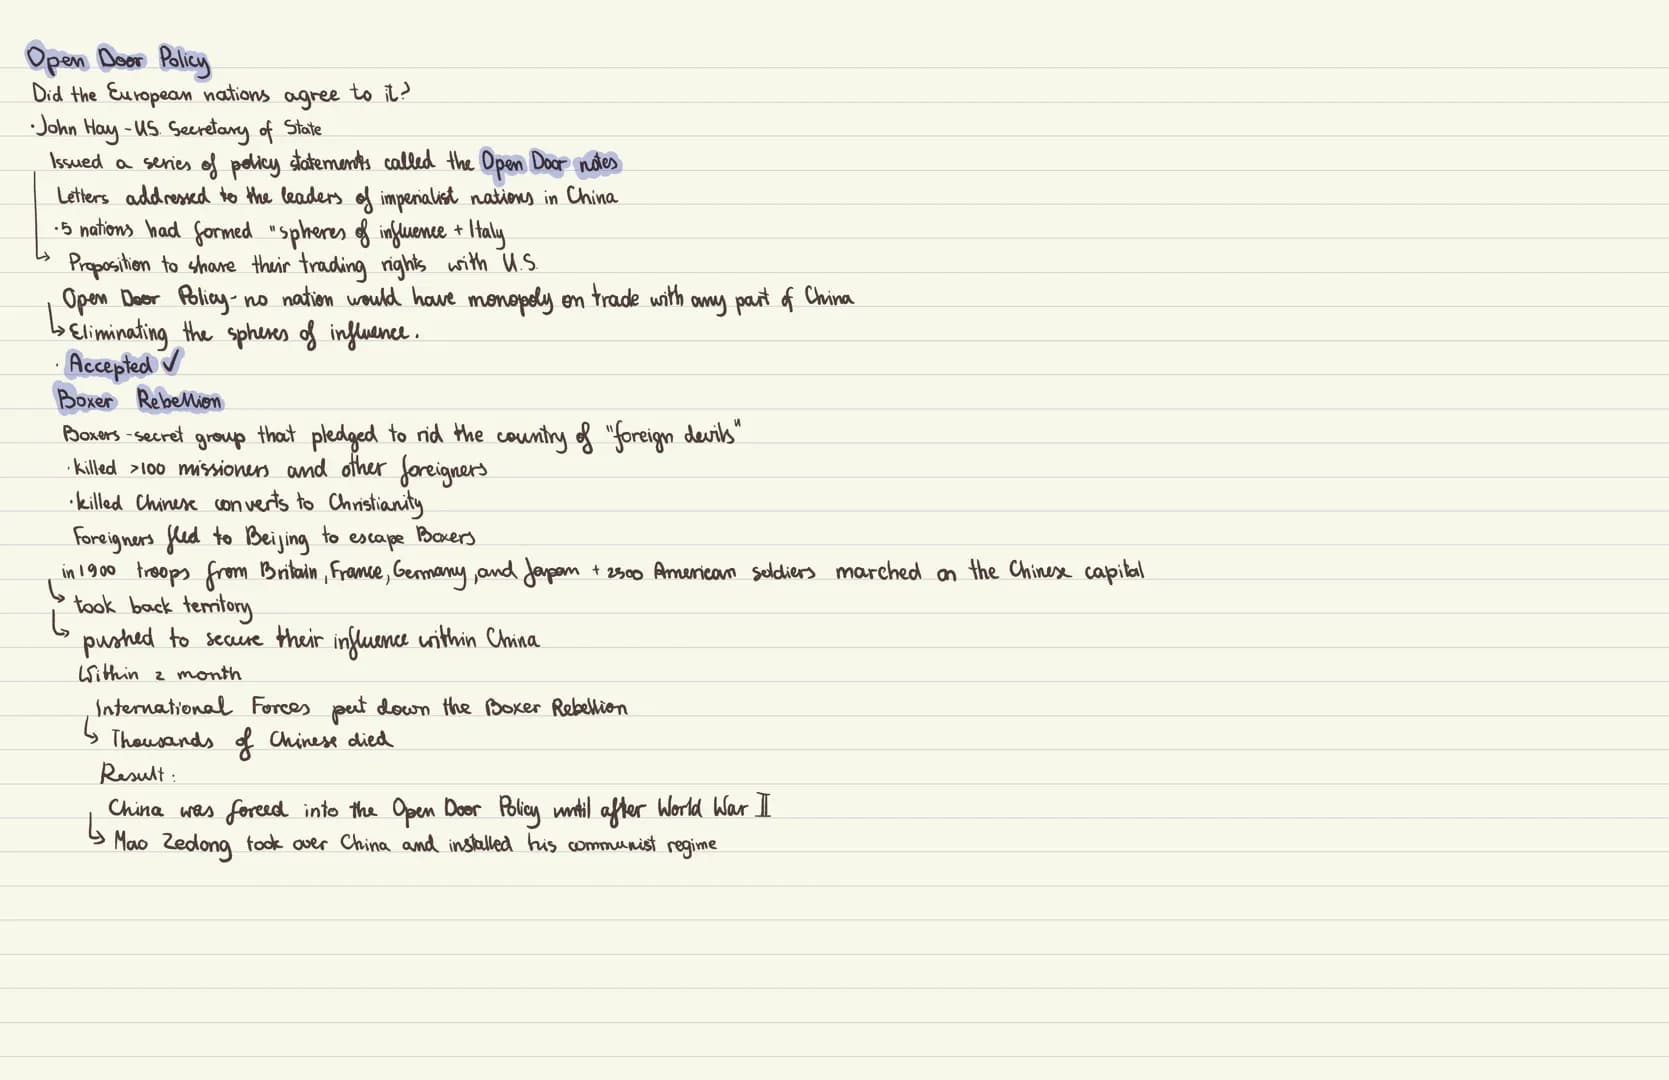 Open Door Policy
Did the European nations agree to it?
·John Hay - U.S. Secretary of State
Issued a series of policy statements called the Open Door notes
Letters addressed to the leaders of imperialist nations in China
·5 nations had formed "spheres of influence + Italy
Proposition to share their trading rights with U.S.
Open Door Policy - no nation would have monopoly on trade with any part of China
↳ Eliminating the spheres of influence.
· Accepted ✓
Boxer Rebellion
Boxers - secret group that pledged to rid the country of "foreign devils"
·killed >100 missioners and other foreigners
·killed Chinese converts to Christianity
Foreigners fled to Beijing to escape Boxers
in 1900 troops from Britain, France, Germany, and Japan + 2500 American soldiers marched on the Chinese capital
↳ took back territory
↳ pushed to secure their influence within China
Within 2 month
International Forces put down the Boxer Rebellion
↳ Thousands of Chinese died
Result:
China was forced into the Open Door Policy until after World War II
↳ Mao Zedong took over China and installed his communist regime